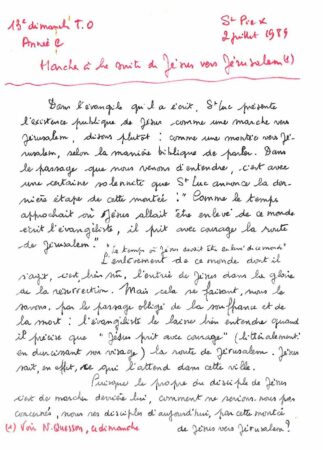 13e dimanche T.O
St Pie X
Année C
2 juillet 1989
Marche à la suite de Jésus vers Jérusalem (*)
Dans l'évangile qu'il a écrit, St Luc présente
l'existence publique de Jésus comme une marche vers
Jérusalem, disons plutôt : comme une montée vers Jé-
rusalem, selon la manière biblique de parler. Dans
le passage que nous venons d'entendre, c'est avec
une certaine solennité que St Luc annonce la der-
nière étape de cette montée : "Comme le temps
approchait où Jésus allait être enlevé de ce monde
écrit l'évangéliste, il prit avec courage la route
de Jérusalem."
"Le temps où Jésus devait être enlevé de ce monde"
L'enlèvement de ce monde dont il
s'agit, c'est, bien sûr, l'entrée de Jésus dans la gloire
de la résurrection. Mais cela se faisant, nous le
savons, par le passage obligé de la souffrance et de
la mort : l'évangéliste le laisse bien entendre quand
il précise que "Jésus prit avec courage" (littéralement :
en durcissant son visage) la route de Jérusalem. Jésus
sait, en effet, ce qui l'attend dans cette ville.
Puisque le propre du disciple de Jésus
c'est de marcher derrière lui, comment ne serions-nous pas
concernés, nous ses disciples d'aujourd'hui, par cette montée
de Jésus vers Jérusalem ?
(*) Voir N. Quesson, ce dimanche